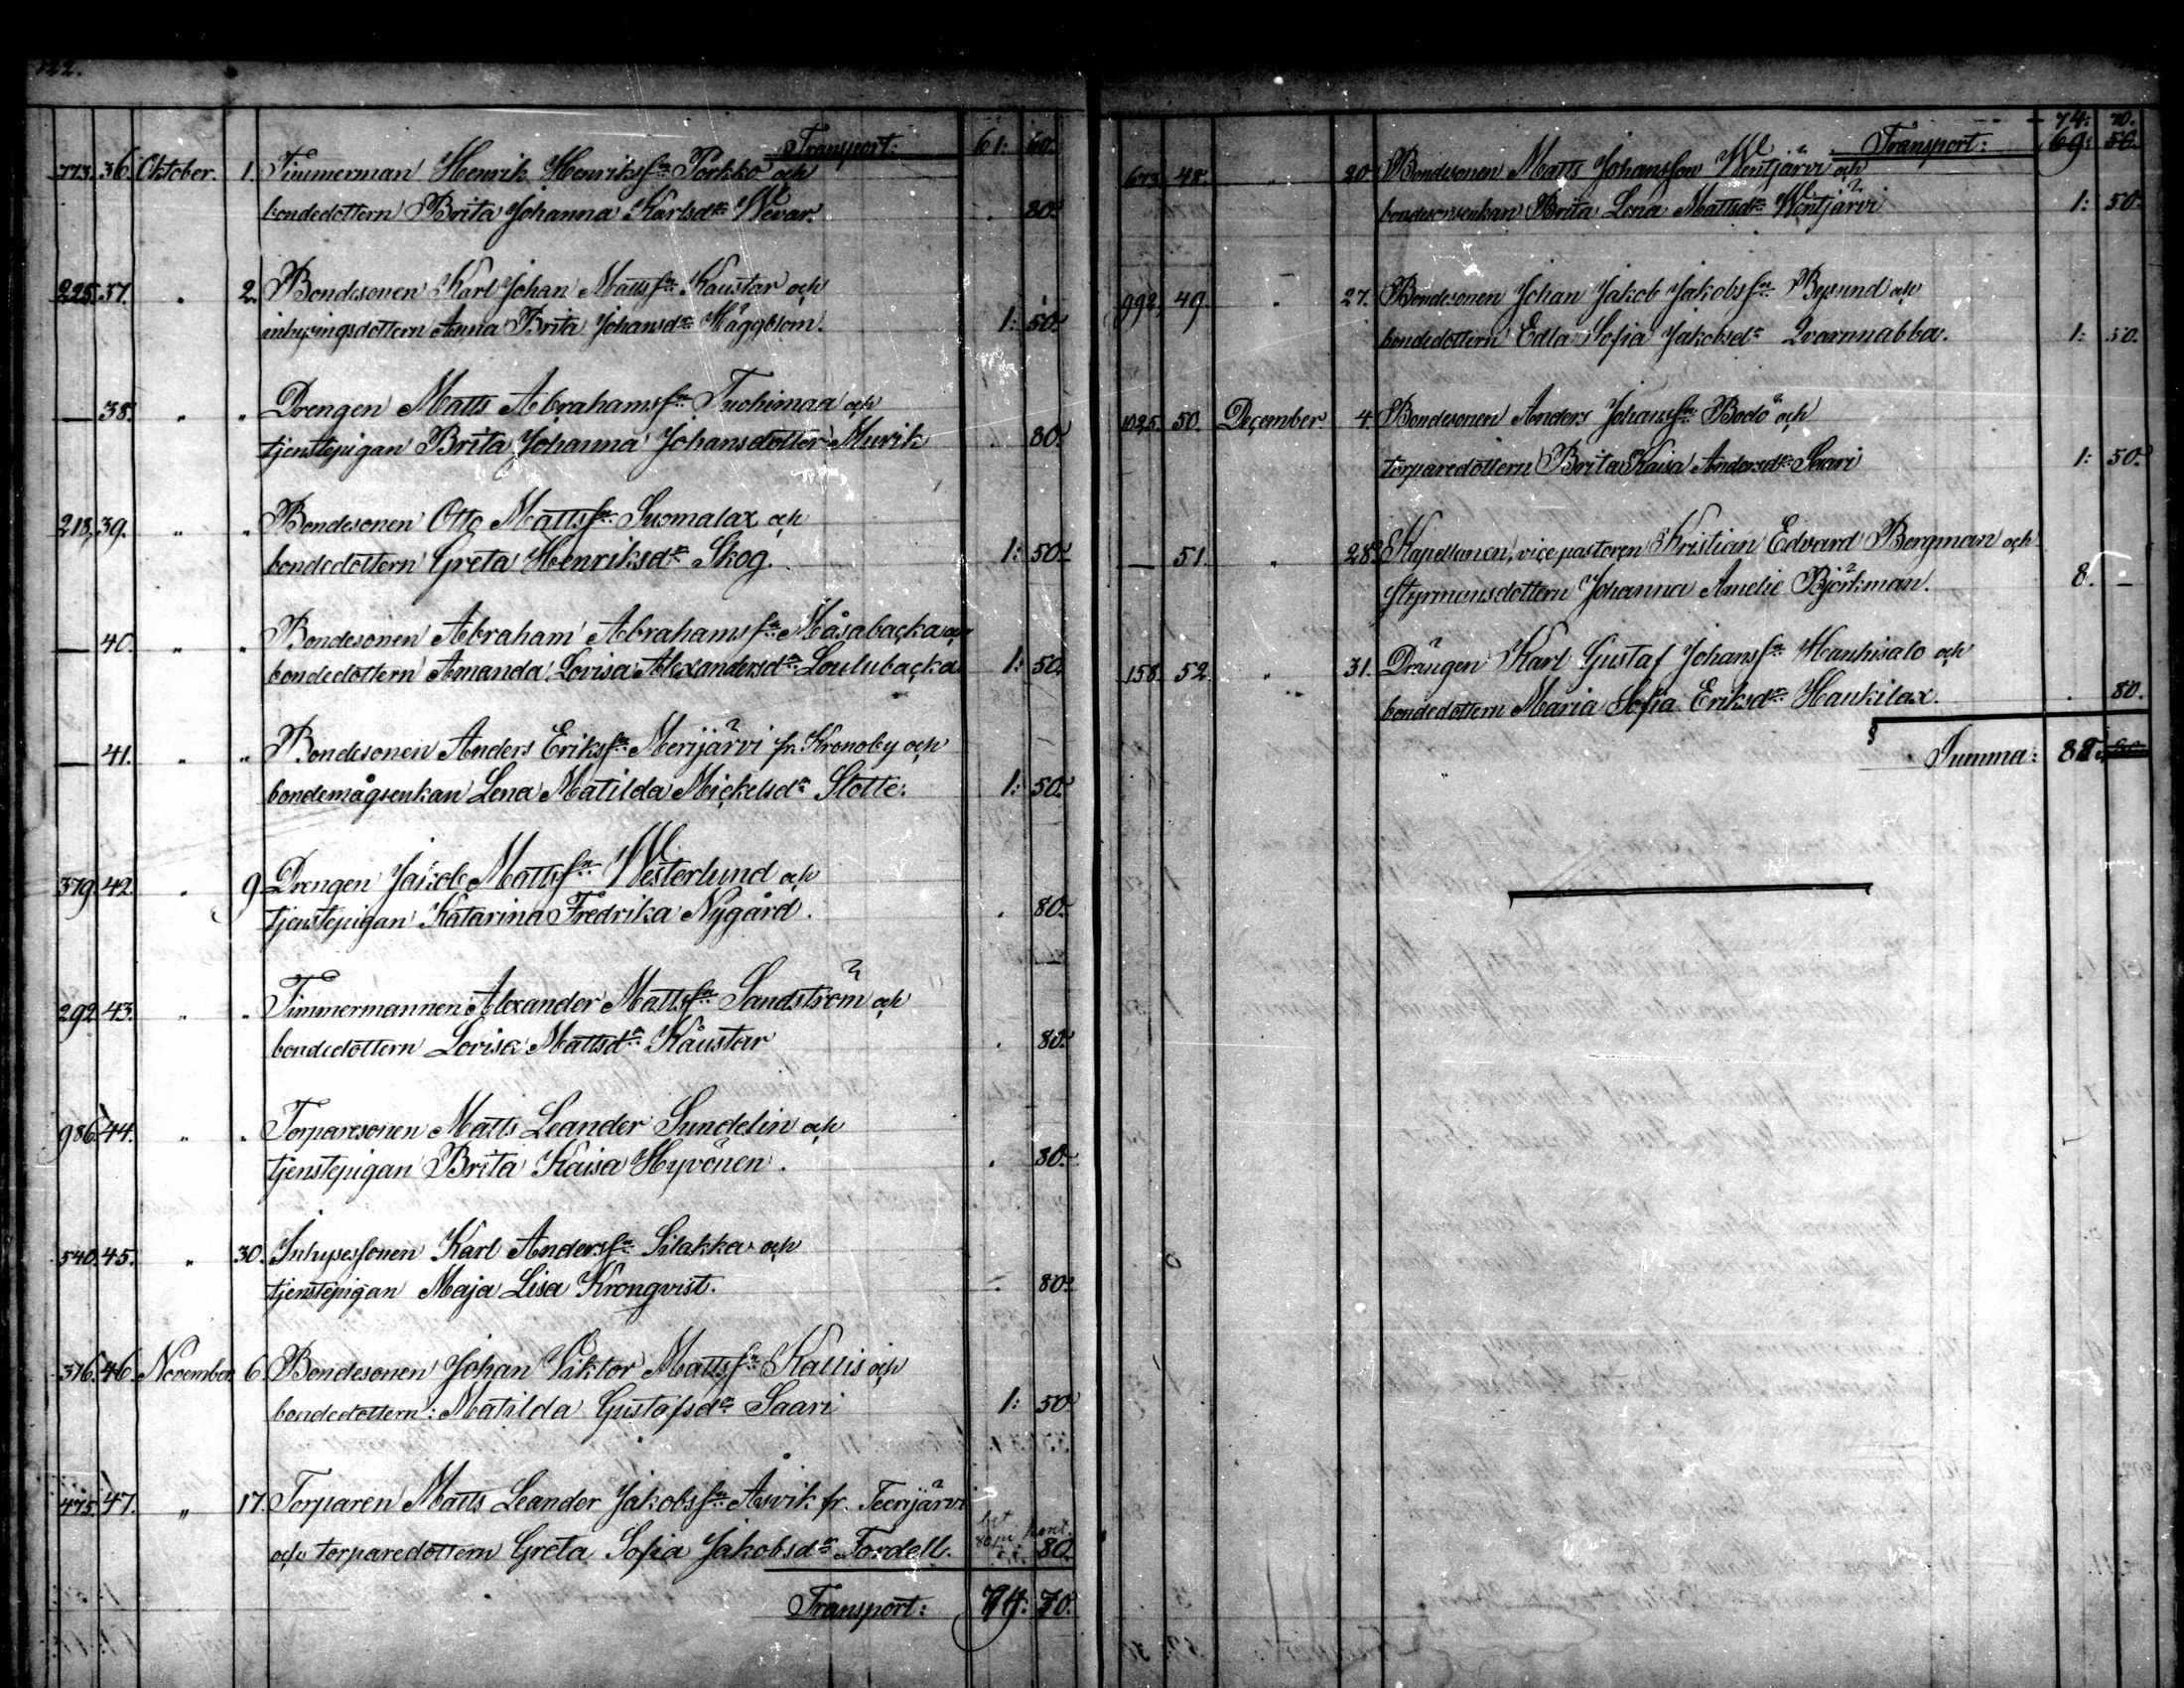 122.
Transport: 61: 60.
773. 36. Oktober. 1. Timmerman Henrik Henriksſn Porkko och
bondedottern Brita Johanna Karlsdr Wevar. . 80.
225. 37. " 2. Bondesonen Karl Johan Mattsſn Kaustar och
inhysingsdottern Anna Brita Johansdr Häggblom. 1: 50.
— 38. " " Drengen Matts Abrahamsſn Tuohimaa och
tjenstepigan Brita Johanna Johansdotter Murik . 80.
213. 39. " " Bondesonen Otto Mattsſn Suomalax och
bondedottern Greta Henriksdr Skog. 1: 50.
— 40. " " Bondesonen Abraham Abrahamsſn Måsabacka och
bondedottern Amanda Lovisa Alexandersdr Loulubacka 1: 50.
— 41. " " Bondesonen Anders Eriksſn Merijärvi fr. Kronoby och
bondemågsenkan Lena Matilda Mickelsdr Slotte. 1: 50.
379. 42. " 9. Drengen Jakob Mattsſn Westerlund och
tjenstepigan Katarina Fredrika Nygård. . 80.
292. 43. " " Timmermannen Alexander Mattsſn Sandström och
bondedottern Lovisa Mattsdr Kaustar . 80.
986. 44. " " Torparesonen Matts Leander Sundelin och
tjenstepigan Brita Kaisa Hyvönen. . 80.
540. 45. " 30. Inhyseſonen Karl Andersſn Silakka och
tjenstepigan Maja Lisa Kronqvist. . 80.
376. 46. November 6. Bondesonen Johan Viktor Mattsſn Kallis och
bondedottern: Matilda Gustafsdr Saari 1: 50.
475. 47. " 17. Torparen Matts Leander Jakobsſn Åsvik fr. Teerijärvi
och torparedottern Greta Sofia Jakobsdr Fordell. 80.
Transport: 74: 70.
74: 70.
Transport: 69: 50.
673. 48. " 20. Bondesonen Matts Johansſon Wentjärvi och
bondesonsenkan Brita Lena Mattsdr Wentjärvi 1: 50.
992. 49. " 27. Bondesonen Johan Jakob Jakobsſn Bysund och
bondedottern Edla Sofia Jakobsdr Qvarnnabba. 1: 50.
1025. 50. December 4. Bondesonen Anders Johansſn Bodö och
torparedottern Brita Kaisa Andersdr Saari 1: 50.
— 51. " 28. Kapellanen, vice pastoren Kristian Edvard Bergman och
ſtyrmansdottern Johanna Amelie Björkman. 8. —
158. 52. " 31. Drängen Karl Gustaf Johansſn Hanhisalo och
bondedottern Maria Sofia Eriksdr Haukilax. . 80.
Summa: 88